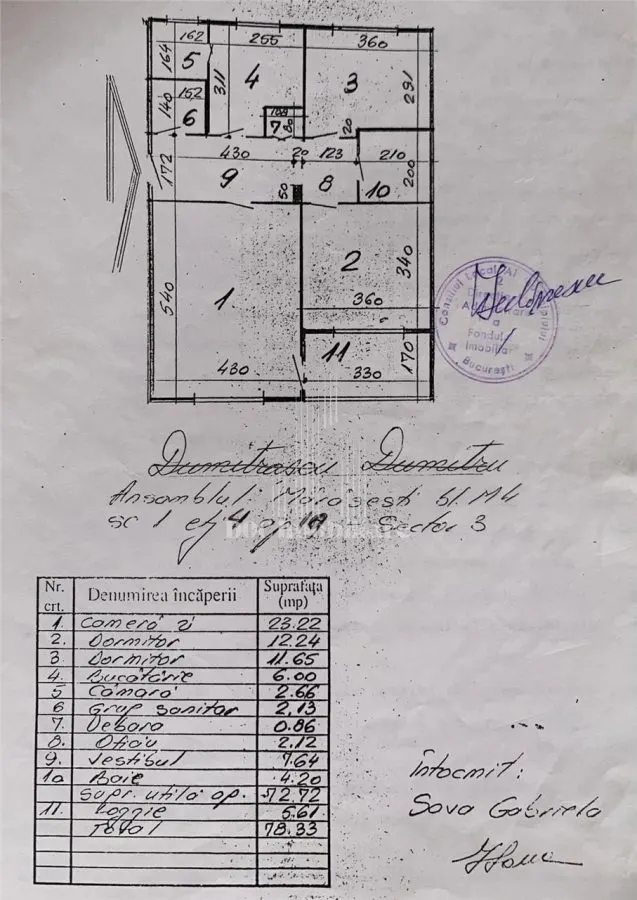 162 255 360
164 5 311 4 3 291
140 152 6 7 80 20
172 430 20 123 210
9 50 8 10 200
540 1 2 340
360
11 170
430 330
Consiliul Local Al
2
a
Fondului
Imobiliar
București
Dumitrascu Dumitru
Ansamblul: Mărășești bl. M4
sc 1 et 4 ap 19 Sector 3
Nr. crt. Denumirea încăperii Suprafața (mp)
1. Cameră zi 23.22
2. Dormitor 12.24
3 Dormitor 11.65
4. Bucătărie 6.00
5 Cămară 2.66
6 Grup sanitar 2,13
7. Debara 0.86
8. Oficiu 2.12
9. Vestibul 7.64
10 Baie 4.20
Supr. utilă ap. 72.72
11. Loggie 5.61
Total 78.33
Întocmit:
Sava Gabriela